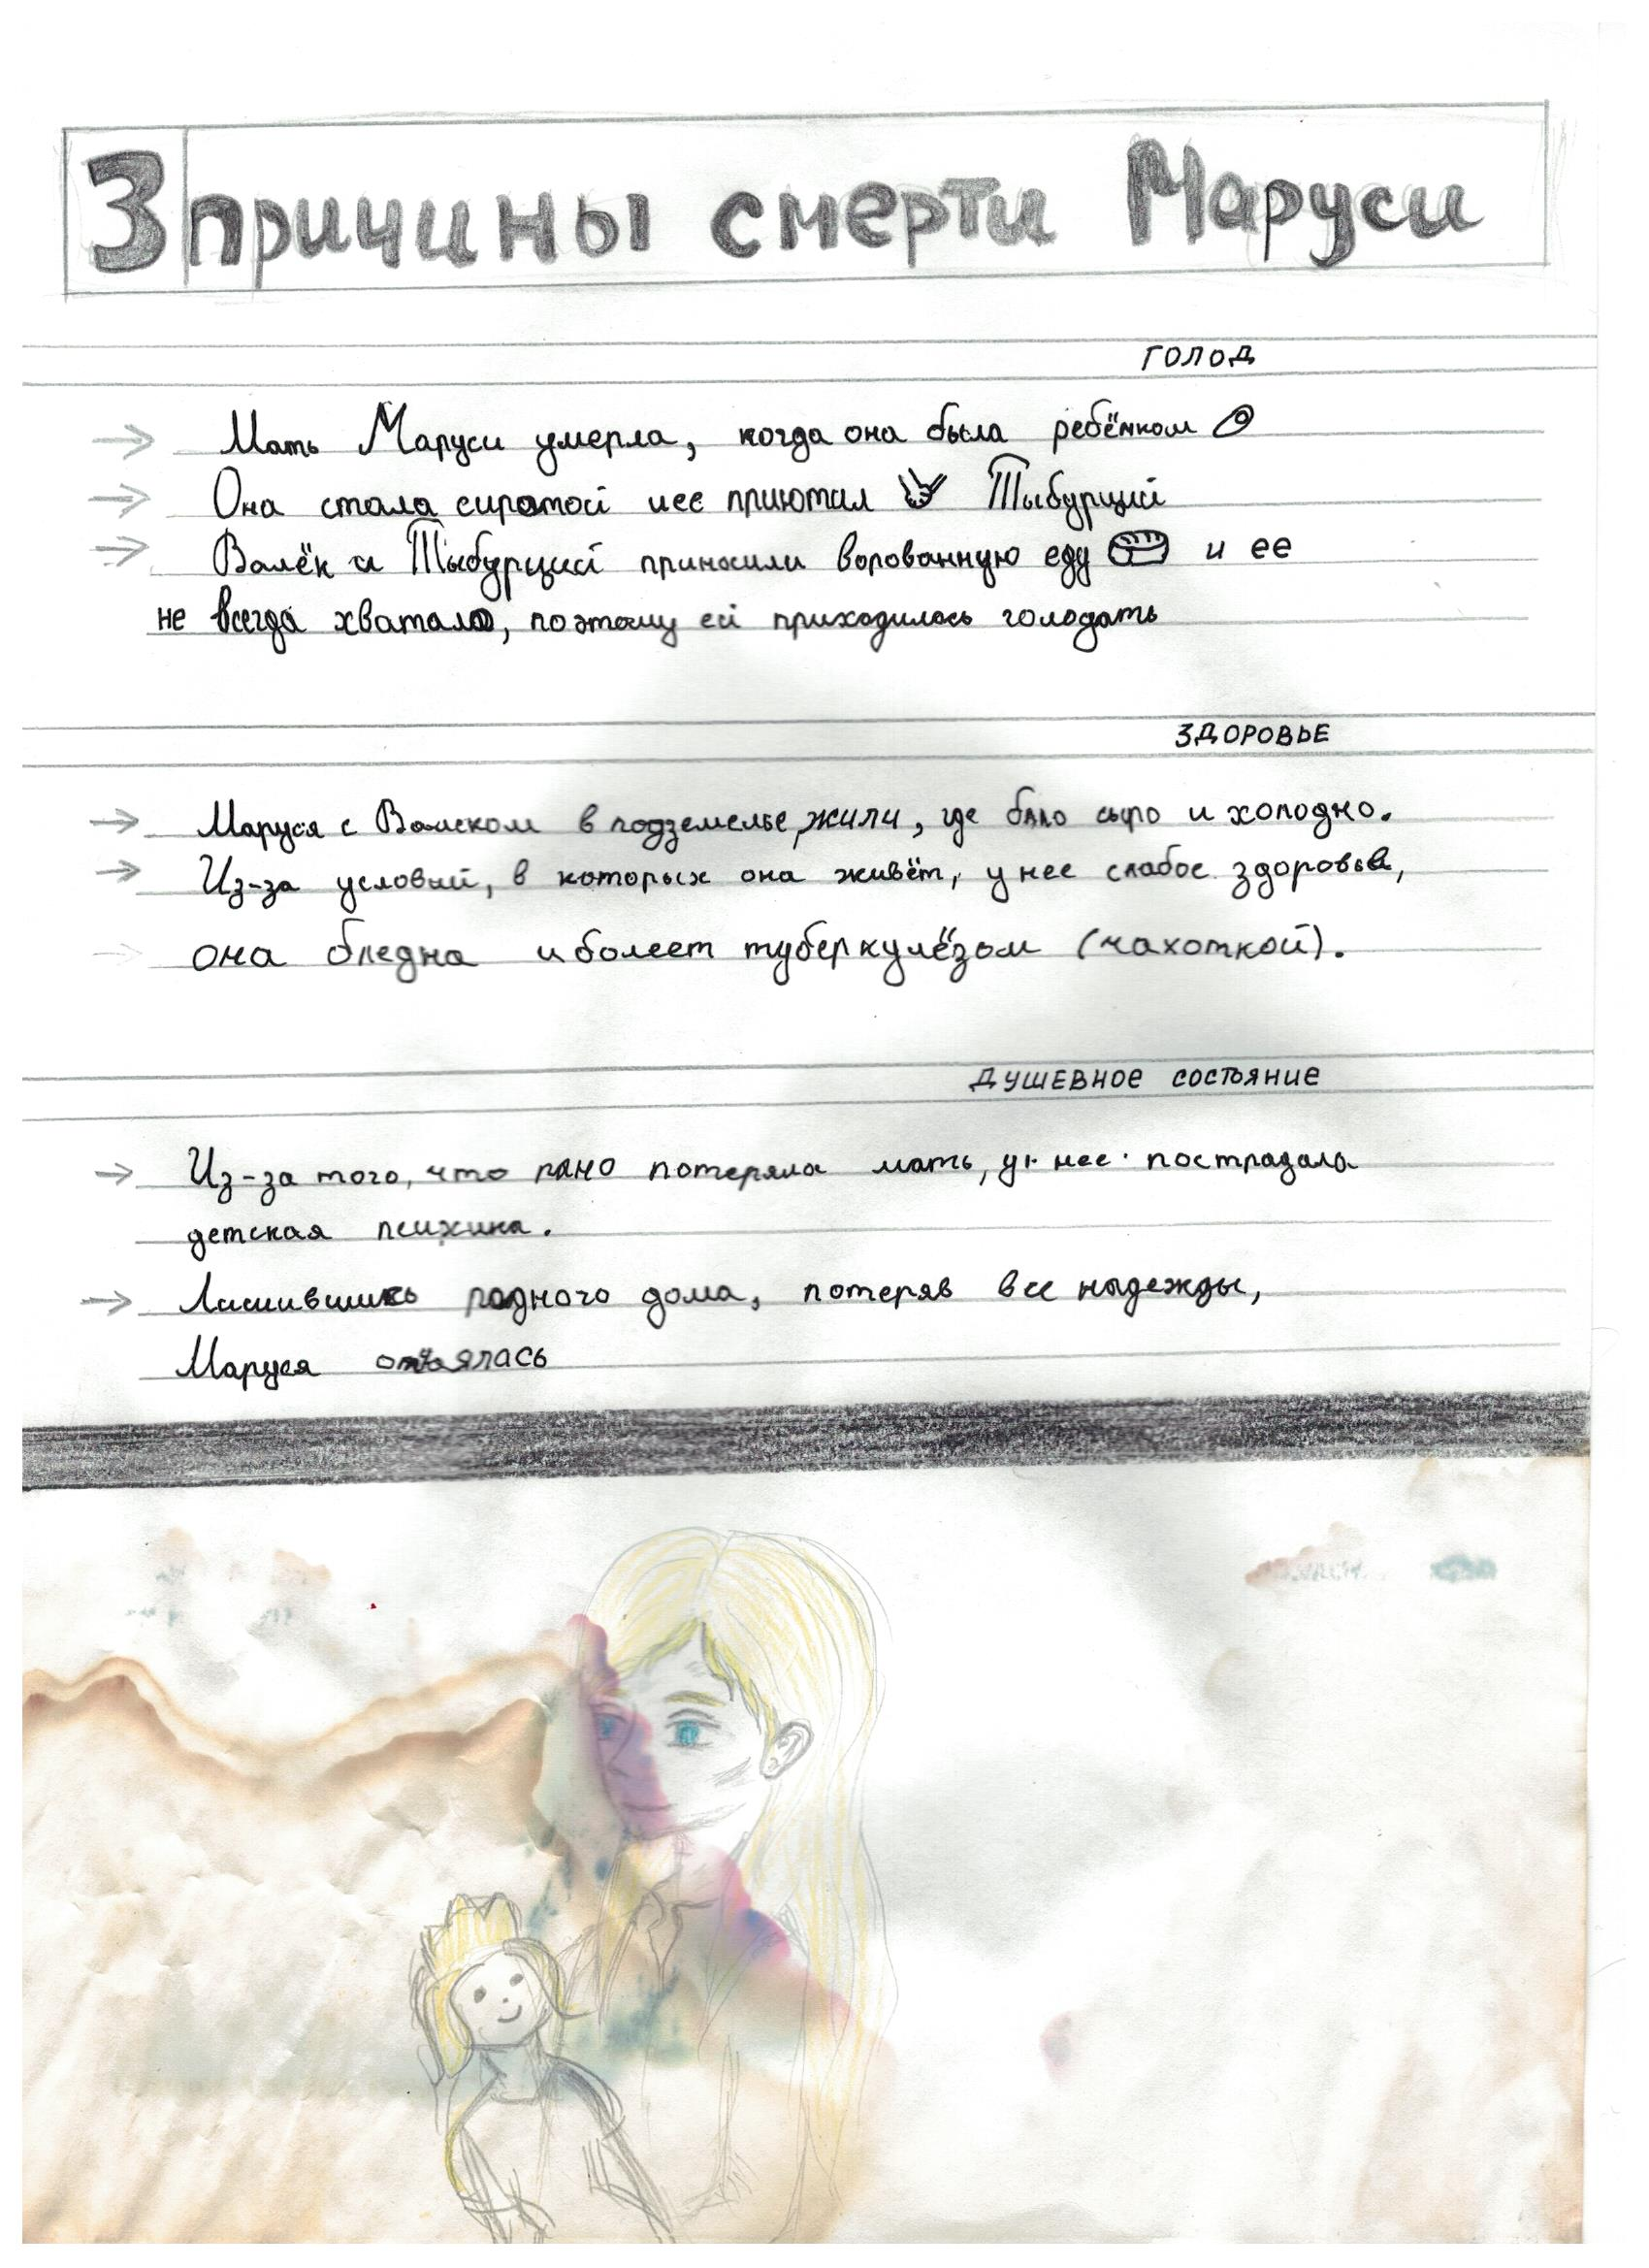 3 причины смерти Маруси
ГОЛОД
Мать Маруси умерла, когда она была ребёнком
Она стала сиротой и ее приютил Тыбурций
Валёк и Тыбурций приносили ворованную еду и ее
не всегда хватало, поэтому ей приходилось голодать
ЗДОРОВЬЕ
Маруся с Валеком в подземелье жили, где было сыро и холодно.
Из-за условий, в которых она живёт, у нее слабое здоровье,
она бледна и болеет туберкулёзом (чахоткой).
ДУШЕВНОЕ СОСТОЯНИЕ
Из-за того, что рано потеряла мать, у нее пострадала
детская психика.
Лишившись родного дома, потеряв все надежды,
Маруся